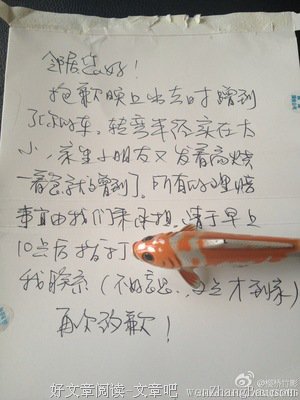 邻居您好！
抱歉晚上出去时蹭到
了你的车，转弯半径实在太
小，家里小朋友又发着高烧
一着急就蹭到了。所有的理赔
事宜由我们来承担，请于早上
10点后拨打
我联系（不好意思，点才到家）
再次致歉！
好文章阅读-文章吧 wenzhangba.com
@樱桥竹影